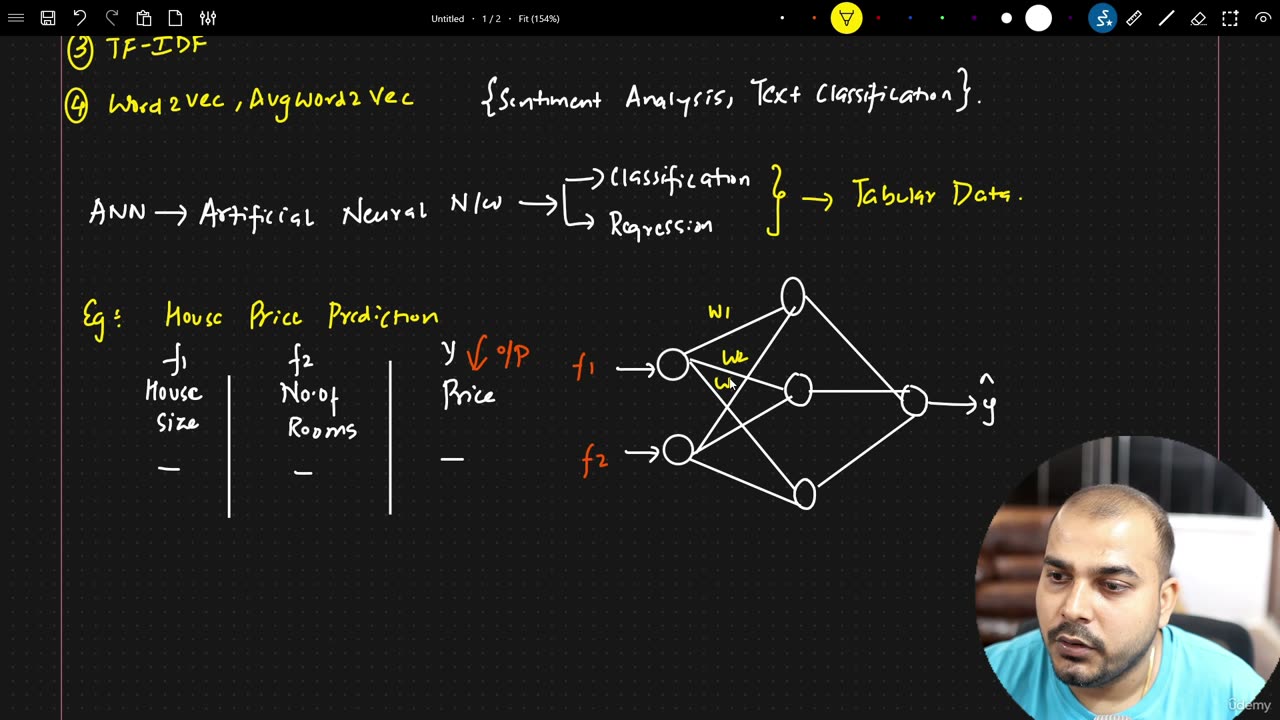 Untitled • 1 / 2 • Fit (154%)
③ TF-IDF
④ Word2Vec, AvgWord2Vec {Sentiment Analysis, Text Classification}.
ANN → Artificial Neural N/W → Classification
Regression
} → Tabular Data.
Eg: House Price Prediction
f1 f2 y ↓ O/P
House Size
No. of Rooms
Price
— — —
W1
W2
W
f1 →
f2 →
→ ŷ
ûdemy